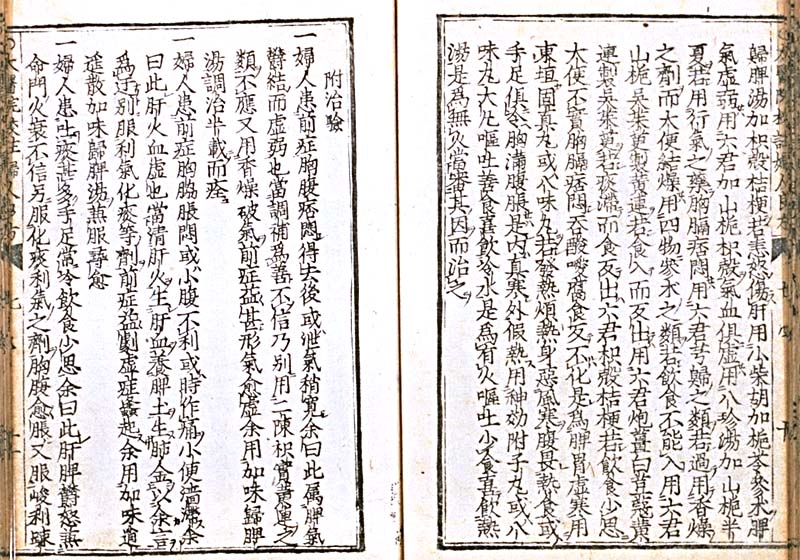 歸脾湯加枳殼桔梗若恚怒傷肝用小柴胡加梔苓炎朮脾
氣虛弱用六君加山梔枳殼氣血俱虛用八珍湯加山梔半
夏若用行氣之藥胸膈痞悶用六君芎歸之類若過用香燥
之劑而大便結燥用四物參朮之類若飲食不能入用六君
山梔吳茱萸製黃連若食入而反出用六君炮薑白
連製吳茱萸若痰滯而食反出六君枳殼桔梗若飲食少思
大便不實胸膈痞悶吞酸噯腐食反不化是為脾胃虛寒用
東垣固真丸或八味丸若發熱煩熱身惡風寒腹畏熱食或
手足俱冷胸滿腹脹是內真寒外假熱用神効附子丸或八
味丸大凡嘔吐善食喜飲冷水是為有火嘔吐少食喜飲熱
湯是為無火當審其因而治之
附治驗
一婦人患前症胸腹痞悶得去後或泄氣稍寬余曰此屬脾氣
鬱結而虛弱也當調補為善不信乃別用二陳枳實黃連之
類不應又用香燥破氣前症益甚形氣愈虛余用加味歸脾
湯調治半載而痊
一婦人患前症胸脇脹悶或小腹不利或時作痛小便澁余
曰此肝火血虛也當清肝火生肝血養脾土生肺金以余言
為迂別服利氣化痰等劑前症益劇虛症蠭起余用加味逍
遙散加味歸脾湯兼服尋愈
一婦人患吐痰甚多手足常冷飲食少思余曰此肝脾鬱怒兼
命門火衰不信另服化痰利氣之劑胸腹愈脹又服峻利疎